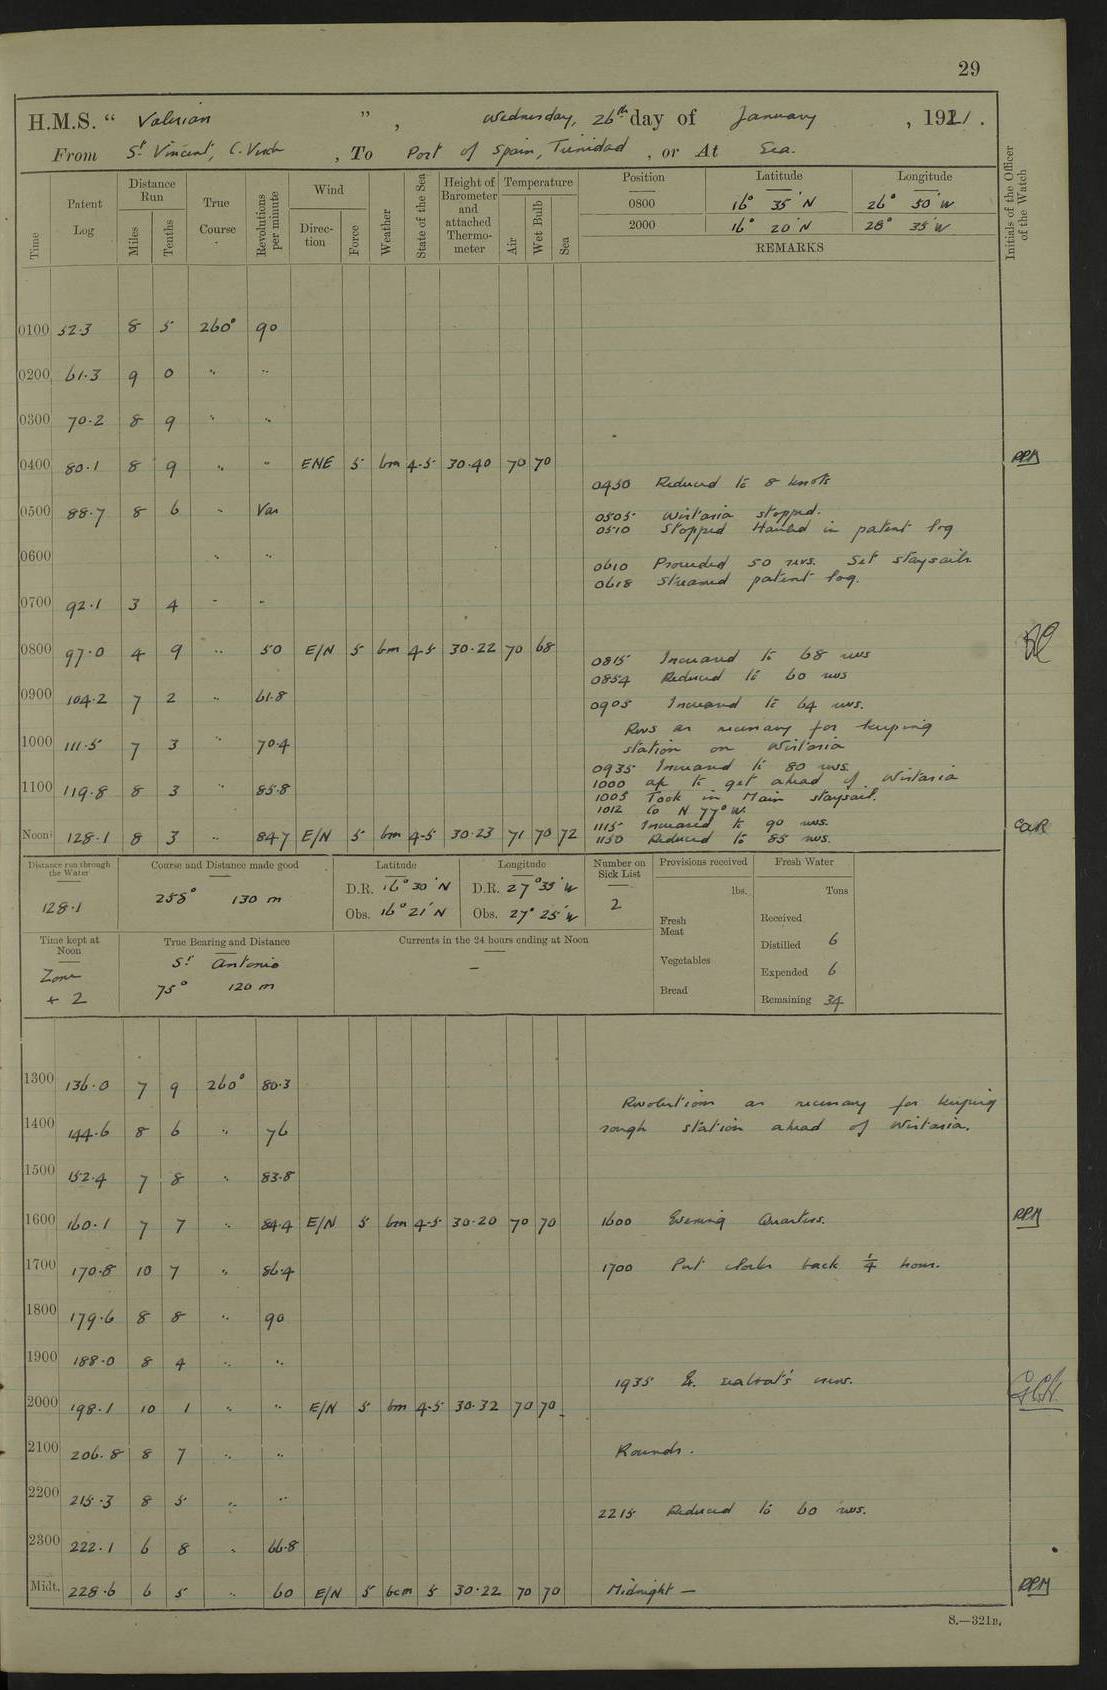 29
H.M.S. " Valerian " , Wednesday, 26th day of January , 1921 .
From St Vincent, C. Verde , To Port of Spain, Trinidad , or At Sea.
Time Patent Log Distance Run Miles Tenths True Course Revolutions per minute Wind Direction Force Weather State of the Sea Height of Barometer and attached Thermometer Temperature Air Wet Bulb Sea Position Latitude Longitude Initials of the Officer of the Watch
0800 16° 35' N 26° 50' W
2000 16° 20' N 28° 35' W
REMARKS
0100 52.3 8 5 260° 90
0200 61.3 9 0 " "
0300 70.2 8 9 " "
0400 80.1 8 9 " " ENE 5 bm 4-5 30.40 70 70 RPM
0450 Reduced to 8 knots
0500 88.7 8 6 " Var
0505 Wistaria stopped.
0510 Stopped Hauled in patent log
0600 " "
0610 Proceeded 50 revs. Set staysails
0618 Streamed patent log.
0700 92.1 3 4 " "
0800 97.0 4 9 " 50 E/N 5 bm 4-5 30.22 70 68
0815 Increased to 68 revs
0854 Reduced to 60 revs
0900 104.2 7 2 " 61.8
0905 Increased to 64 revs.
Revs as necessary for keeping
1000 111.5 7 3 " 70.4
station on Wistaria
0935 Increased to 80 revs.
1000 a/c to get ahead of Wistaria
1100 119.8 8 3 " 85.8
1005 Took in Main staysail.
1012 Co N 77° W.
1115 Increased to 90 revs.
Noon 128.1 8 3 " 84.7 E/N 5 bm 4-5 30.23 71 70 72
1150 Reduced to 85 revs.
Distance run through the Water Course and Distance made good Latitude Longitude Number on Sick List Provisions received Fresh Water
128.1 258° 130 m D.R. 16° 30' N D.R. 27° 35' W 2 lbs. Tons
Obs. 16° 21' N Obs. 27° 25' W
Fresh Meat Received
Time kept at Noon True Bearing and Distance Currents in the 24 hours ending at Noon Distilled 6
Zone + 2 St Antonio 75° 120 m – Vegetables Expended 6
Bread Remaining 34
1300 136.0 7 9 260° 80.3
Revolutions as necessary for keeping
1400 144.6 8 6 " 76
rough station ahead of Wistaria.
1500 152.4 7 8 " 83.8
1600 160.1 7 7 " 84.4 E/N 5 bm 4-5 30.20 70 70 1600 Evening Quarters. RPM
1700 170.8 10 7 " 86.4 1700 Put clocks back 1/4 hour.
1800 179.6 8 8 " 90
1900 188.0 8 4 " "
1935 Ex. seaboat's crew.
2000 198.1 10 1 " " E/N 5 bm 4-5 30.32 70 70
2100 206.8 8 7 " " Rounds.
2200 215.3 8 5 " "
2215 Reduced to 60 revs.
2300 222.1 6 8 " 66.8
Midt. 228.6 6 5 " 60 E/N 5 bcm 5 30.22 70 70 Midnight — RPM
S.—321B.